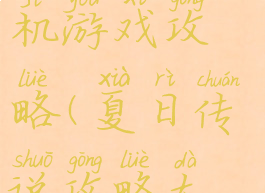 jī yóu xì gōng
机游戏攻
lüè xià rì chuán
略(夏日传
shuō gōng lüè dà
说攻略大